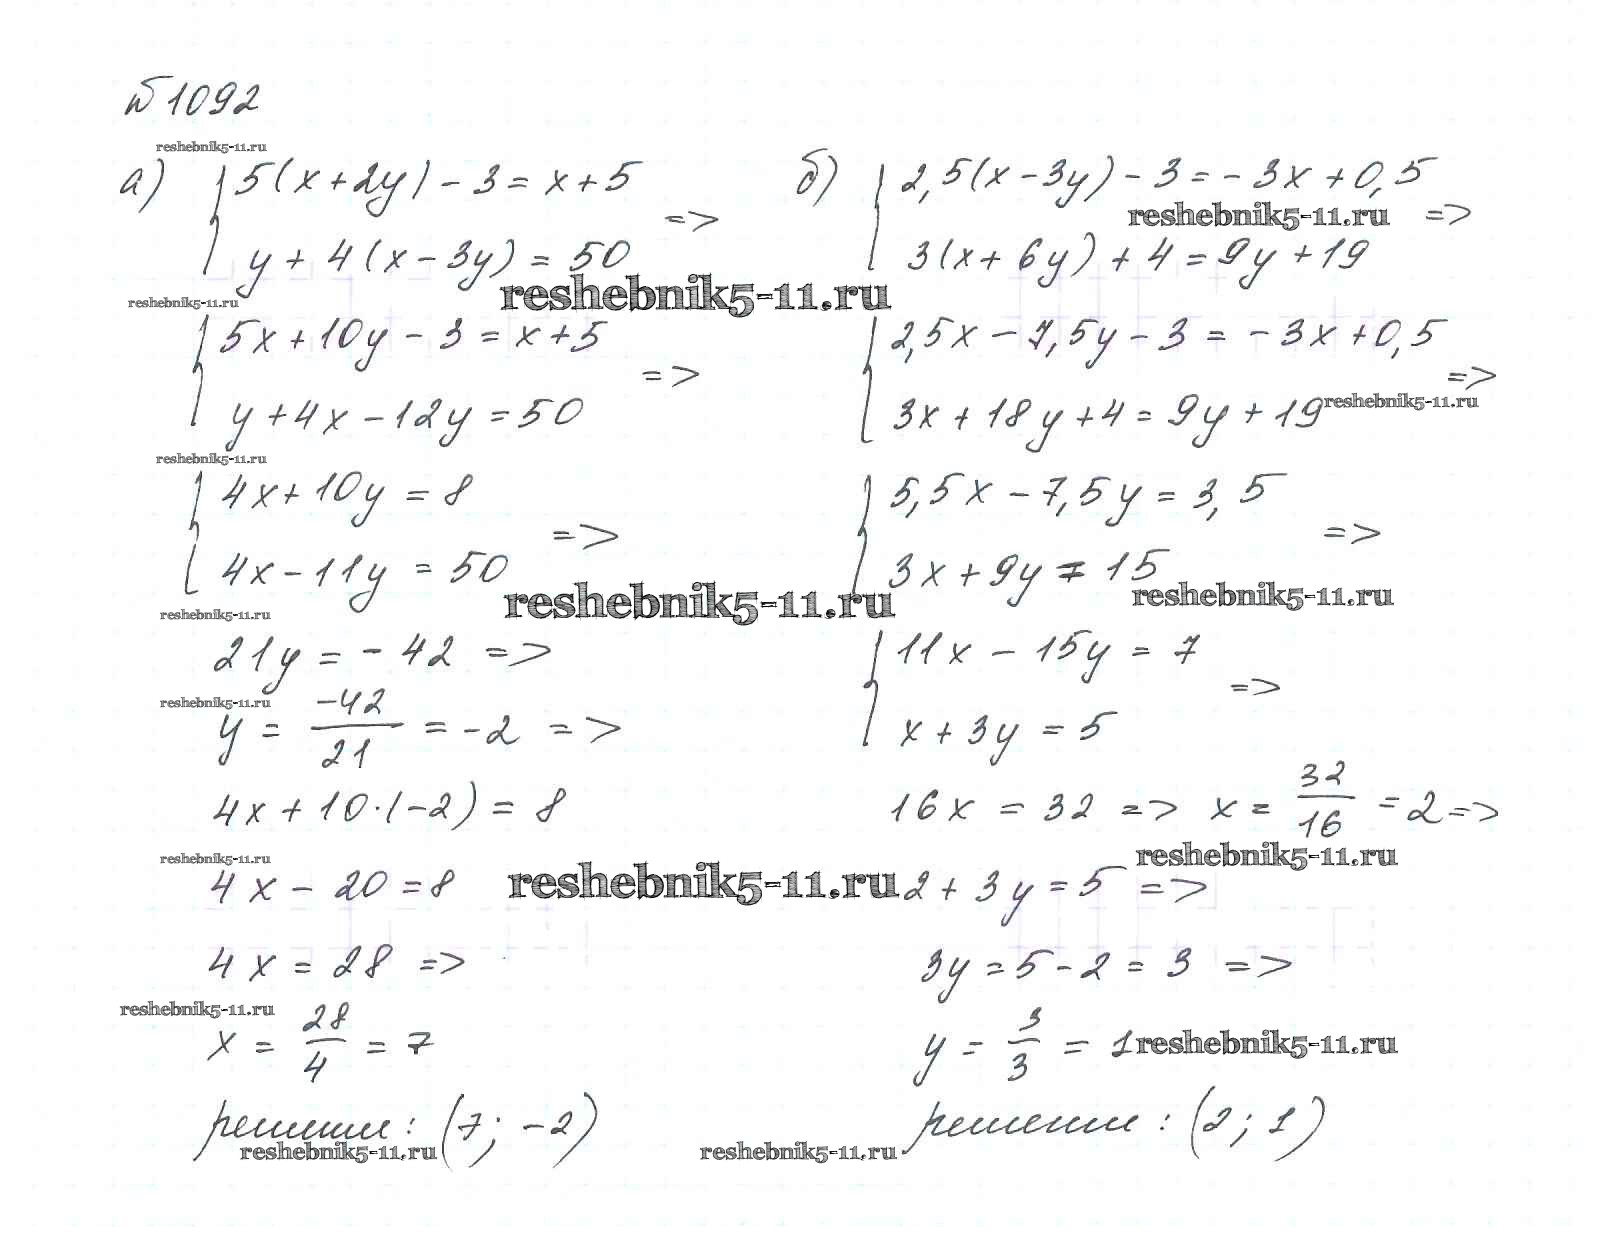 № 1092
reshebnik5-11.ru
а) { 5(x+2y) - 3 = x+5
y + 4(x - 3y) = 50 =>
reshebnik5-11.ru
reshebnik5-11.ru
5x + 10y - 3 = x + 5
y + 4x - 12y = 50 =>
reshebnik5-11.ru
4x + 10y = 8
4x - 11y = 50 =>
reshebnik5-11.ru
reshebnik5-11.ru
21y = -42 =>
reshebnik5-11.ru
y = -42/21 = -2 =>
4x + 10·(-2) = 8
reshebnik5-11.ru
4x - 20 = 8
reshebnik5-11.ru
4x = 28 =>
reshebnik5-11.ru
x = 28/4 = 7
решении: (7; -2)
reshebnik5-11.ru
б) { 2,5(x - 3y) - 3 = -3x + 0,5
reshebnik5-11.ru
3(x + 6y) + 4 = 9y + 19 =>
2,5x - 7,5y - 3 = -3x + 0,5
3x + 18y + 4 = 9y + 19 =>
reshebnik5-11.ru
5,5x - 7,5y = 3,5
3x + 9y = 15 =>
reshebnik5-11.ru
11x - 15y = 7
x + 3y = 5 =>
16x = 32 => x = 32/16 = 2 =>
reshebnik5-11.ru
2 + 3y = 5 =>
3y = 5 - 2 = 3 =>
y = 3/3 = 1
reshebnik5-11.ru
решении: (2; 1)
reshebnik5-11.ru